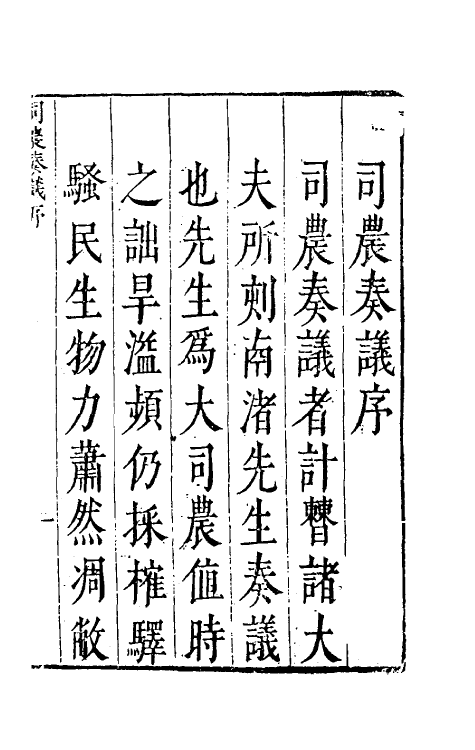 司農奏議序
司農奏議者計曹諸大
夫所刻南渚先生奏議
也先生爲大司農值時
之詘旱滥頻仍採榷驛
騷民生物力蕭然凋敝
司農奏議序
一